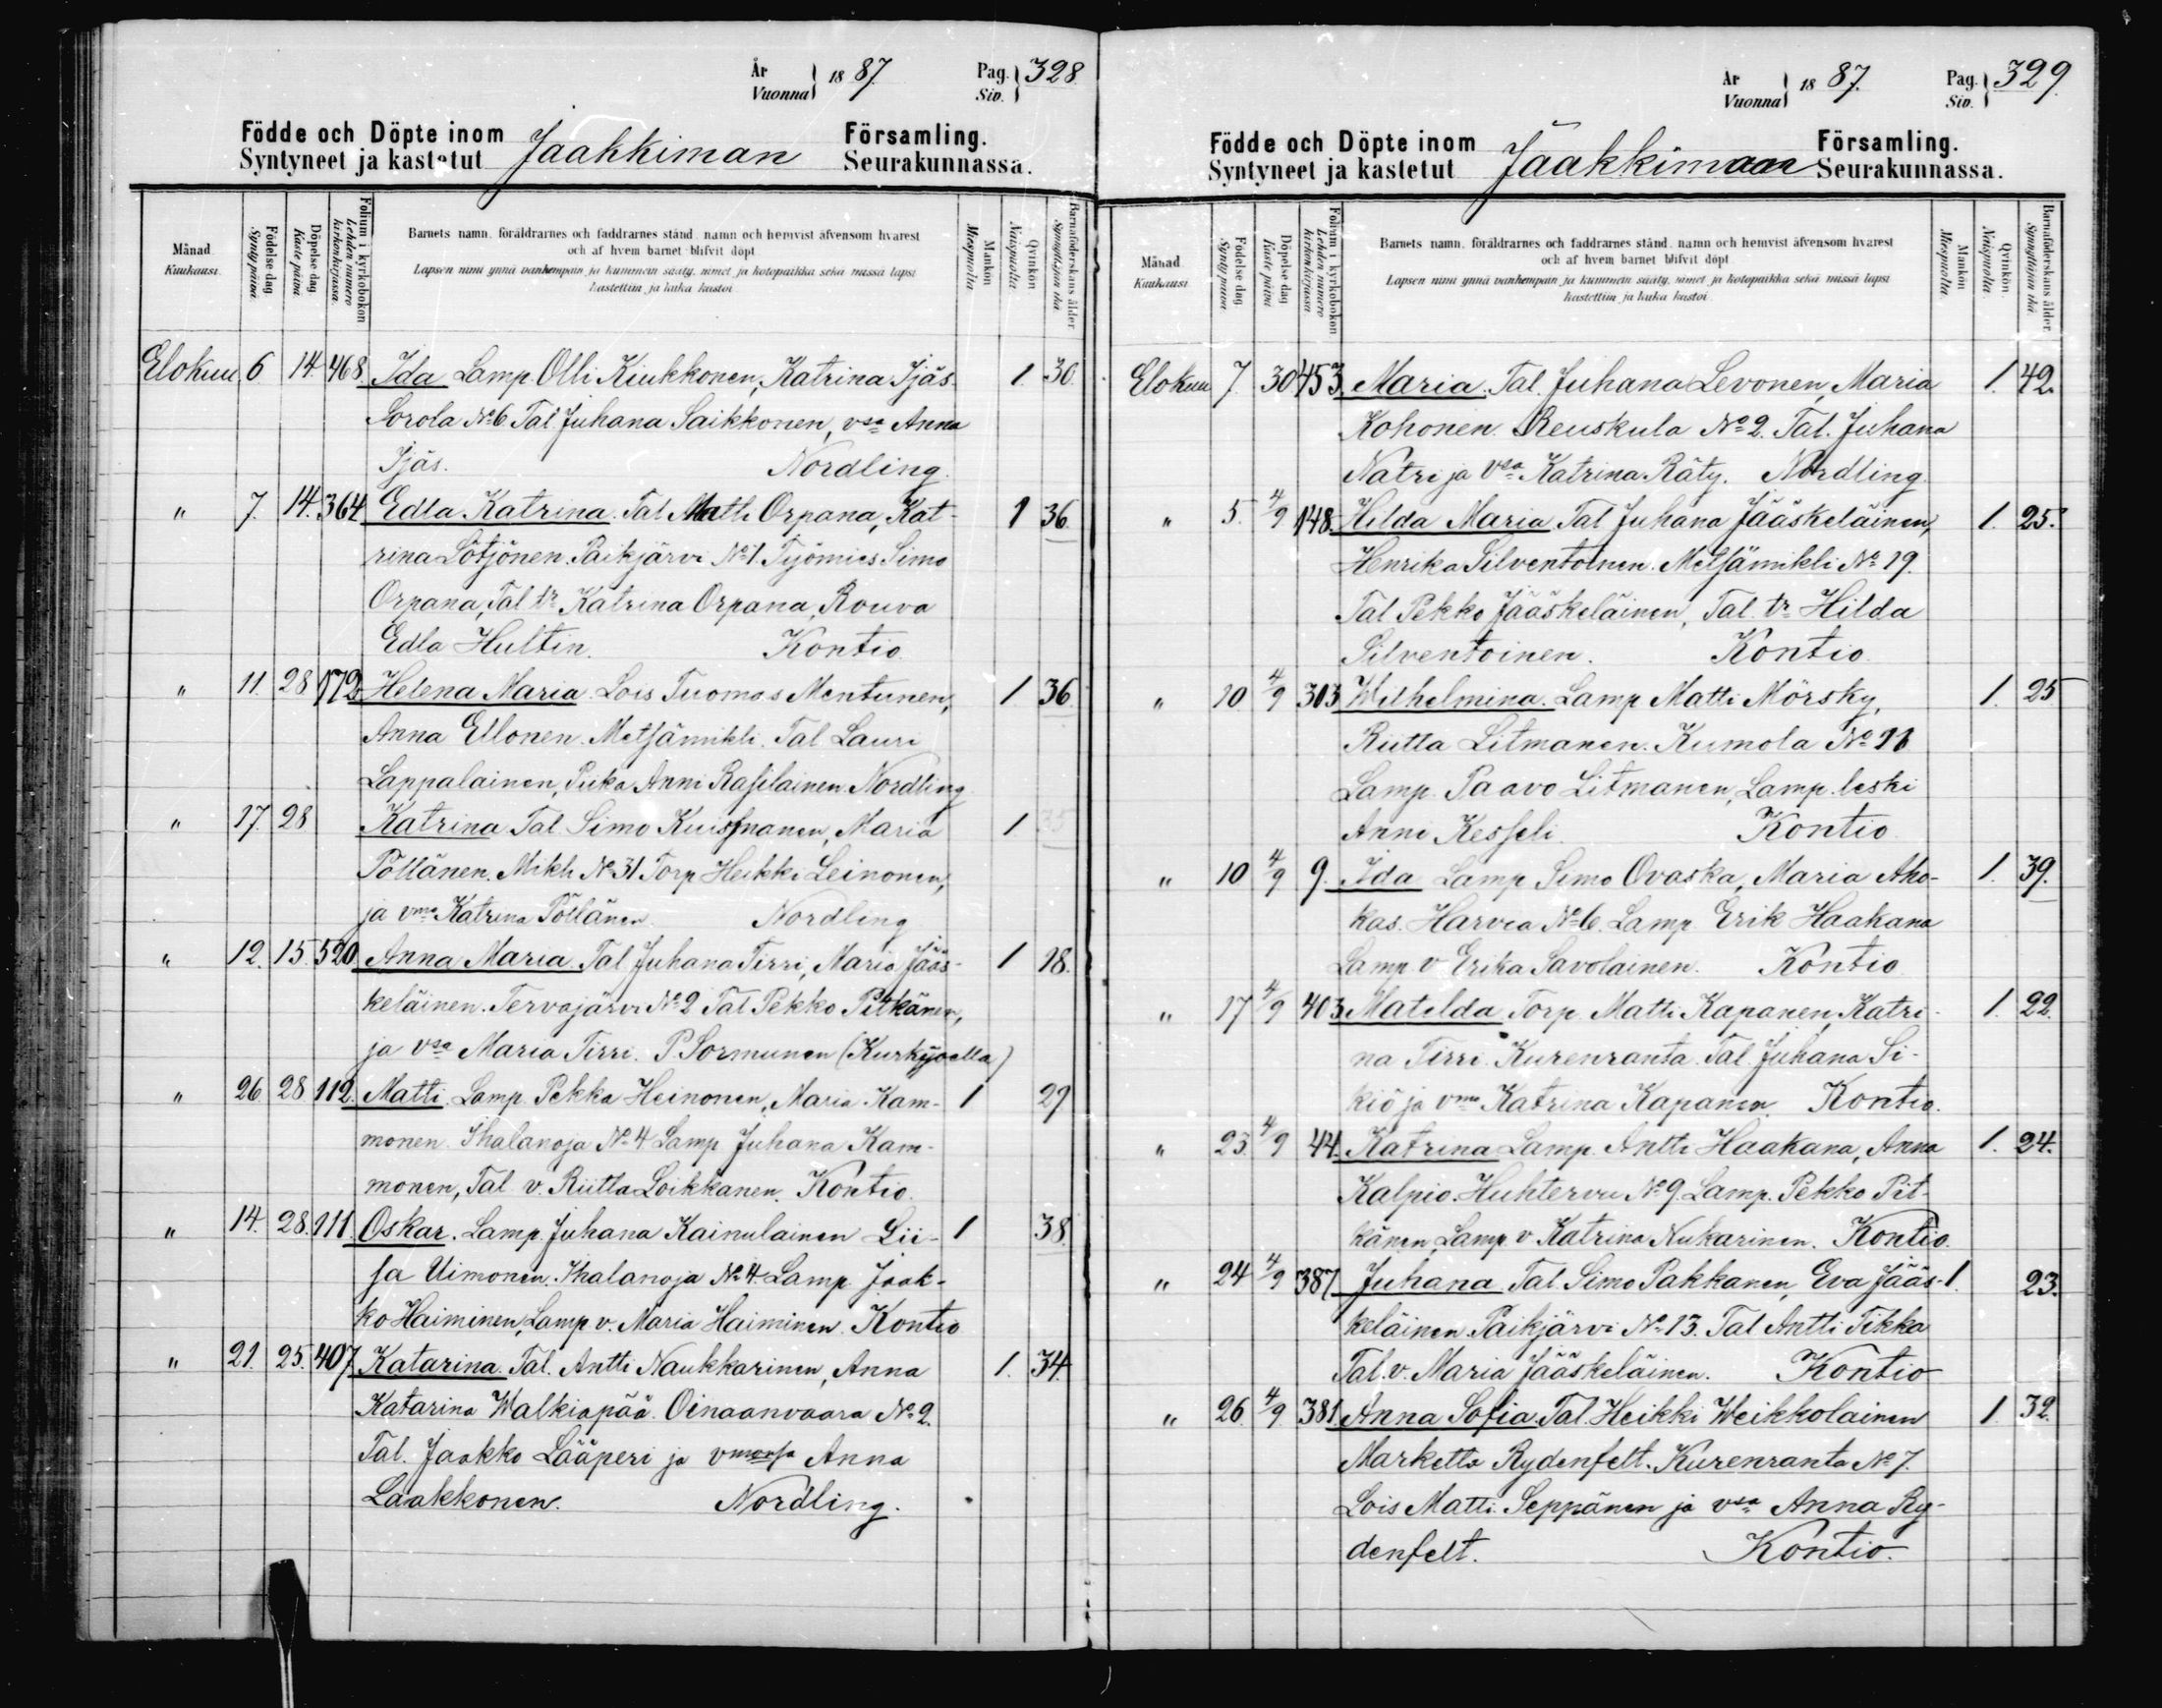 År
Vuonna
1887.
Pag.
Siv.
328
Födde och Döpte inom
Syntyneet ja kastetut
Jaakkiman
Församling.
Seurakunnassa.
Månad
Kuukausi
Födelse dag
Synty päivä
Döpelse dag
Kaste päivä
Folium i kyrkoboken
Lehden numero kirkonkirjassa.
Barnets namn, föräldrarnes och faddrarnes stånd, namn och hemvist äfvensom hvarest
och af hvem barnet blifvit döpt
Lapsen nimi ynnä vanhempain ja kummein sääty, nimet ja kotopaikka sekä missä lapsi
kastettiin ja kuka kastoi
Mankön
Miespuolta
Qvinkön
Naispuolta
Barnaföderskans ålder
Synnyttäjän ikä
Elokuu 6 14 468. Ida Lamp. Olli Kiukkonen, Katrina Ijäs 1. 30.
Sorola No 6 Tal Juhana Saikkonen, vsa Anna
Ijäs. Nordling.
" 7. 14. 364 Edla Katrina. Tal Matti Orpana, Kat- 1 36.
rina Lötjönen. Paikjärvi No 1. Työmies Simo
Orpana, Tal tr Katrina Orpana, Rouva
Edla Hultin. Kontio.
" 11. 28 172. Helena Maria. Lois Tuomas Mentunen, 1 36.
Anna Ellonen. Metsämikli. Tal Lauri
Lappalainen, Piika Anni Rasilainen. Nordling
" 17. 28 Katrina Tal. Simo Kuismanen, Maria 1 35
Pöllänen. Mikli No 31 Torp Heikki Leinonen,
ja vmo Katrina Pöllänen. Nordling
" 12. 15. 520. Anna Maria. Tal Juhana Tirri, Maria Jääs- 1 28.
keläinen. Tervajärvi No 2 Tal Pekko Pitkänen,
ja vsa Maria Tirri. P. Sormunen (Kurkijoella)
" 26 28 112. Matti. Lamp. Pekka Heinonen, Maria Kam- 1 29
monen. Ihalanoja No 4 Lamp Juhana Kam-
monen, Tal v. Riitta Loikkanen. Kontio.
" 14. 28. 111. Oskar. Lamp. Juhana Kainulainen Lii- 1 38.
sa Uimonen. Ihalanoja No 4 Lamp. Jaak-
ko Haiminen, Lamp v. Maria Haiminen. Kontio
" 21. 25. 407 Katarina. Tal. Antti Naukkarinen, Anna 1. 34.
Katarina Walkiapää. Oinaanvaara No 2.
Tal. Jaakko Lääperi ja Anna
Laakkonen. Nordling.
År
Vuonna
1887.
Pag.
Siv.
329
Födde och Döpte inom
Syntyneet ja kastetut
Jaakkiman
Församling.
Seurakunnassa.
Månad
Kuukausi
Födelse dag
Synty päivä
Döpelse dag
Kaste päivä
Folium i kyrkoboken
Lehden numero kirkonkirjassa.
Barnets namn, föräldrarnes och faddrarnes stånd, namn och hemvist äfvensom hvarest
och af hvem barnet blifvit döpt
Lapsen nimi ynnä vanhempain ja kummein sääty, nimet ja kotopaikka sekä missä lapsi
kastettiin ja kuka kastoi
Mankön
Miespuolta
Qvinkön
Naispuolta
Barnaföderskans ålder
Synnyttäjän ikä
Elokuu 7. 30 453. Maria. Tal. Juhana Levonen, Maria 1. 42.
Kohonen. Reuskula No 2. Tal. Juhana
Natri ja vsa Katrina Räty. Nordling.
" 5. 4/9 148. Hilda Maria Tal Juhana Jääskeläinen, 1. 25.
Henrika Silventoinen. Metsämikli No 19.
Tal Pekko Jääskeläinen, Tal. tr Hilda
Silventoinen. Kontio.
" 10. 4/9 303 Wilhelmina. Lamp Matti Mörsky, 1. 25
Riitta Litmanen. Kumola No 21
Lamp. Paavo Litmanen, Lamp. leski
Anni Kesseli. Kontio.
" 10 4/9 9. Ida Lamp Simo Ovaska, Maria Aho- 1. 39.
kas. Harvia No 6. Lamp. Erik Haakana
Lamp v Erika Savolainen. Kontio
" 17 4/9 403 Matilda Torp. Matti Kapanen, Katri- 1. 22.
na Tirri. Kurenranta. Tal. Juhana Si-
kiö ja vmo Katrina Kapanen. Kontio.
" 23. 4/9 44. Katrina Lamp. Antti Haakana, Anna 1. 24.
Kalpio. Huhtervu No 9. Lamp. Pekko Pit-
känen, Lamp. v Katrina Nukarinen. Kontio.
" 24 4/9 387 Juhana Tal. Simo Pakkanen, Eva Jääs- 1. 23.
keläinen. Paikjärvi No 13. Tal Antti Tikka
Tal. v. Maria Jääskeläinen. Kontio
" 26. 4/9 381. Anna Sofia. Tal. Heikki Weikkolainen 1. 32.
Marketta Rydenfelt. Kurenranta No 7.
Lois Matti Seppänen ja vsa Anna Ry-
denfelt. Kontio.